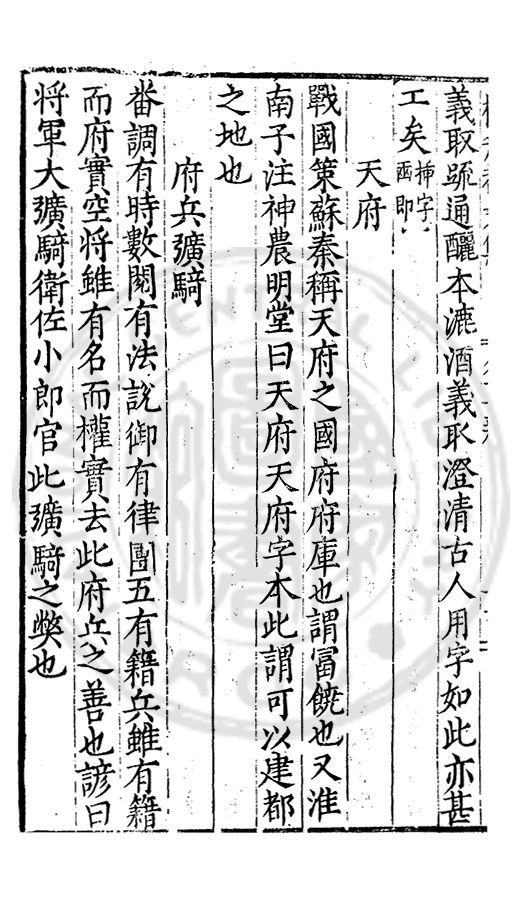 義取疏通釃本漉酒義取澄清古人用字如此亦甚
工矣挿字
臿即
天府
戰國策蘇秦稱天府之國府府庫也謂冨饒也又淮
南子注神農明堂曰天府天府字本此謂可以建都
之地也
府兵彍騎
畨調有時數閱有法說御有律團五有籍兵雖有籍
而府實空将雖有名而權實去此府兵之善也諺曰
将軍大彍騎衛佐小郎官此彍騎之獘也